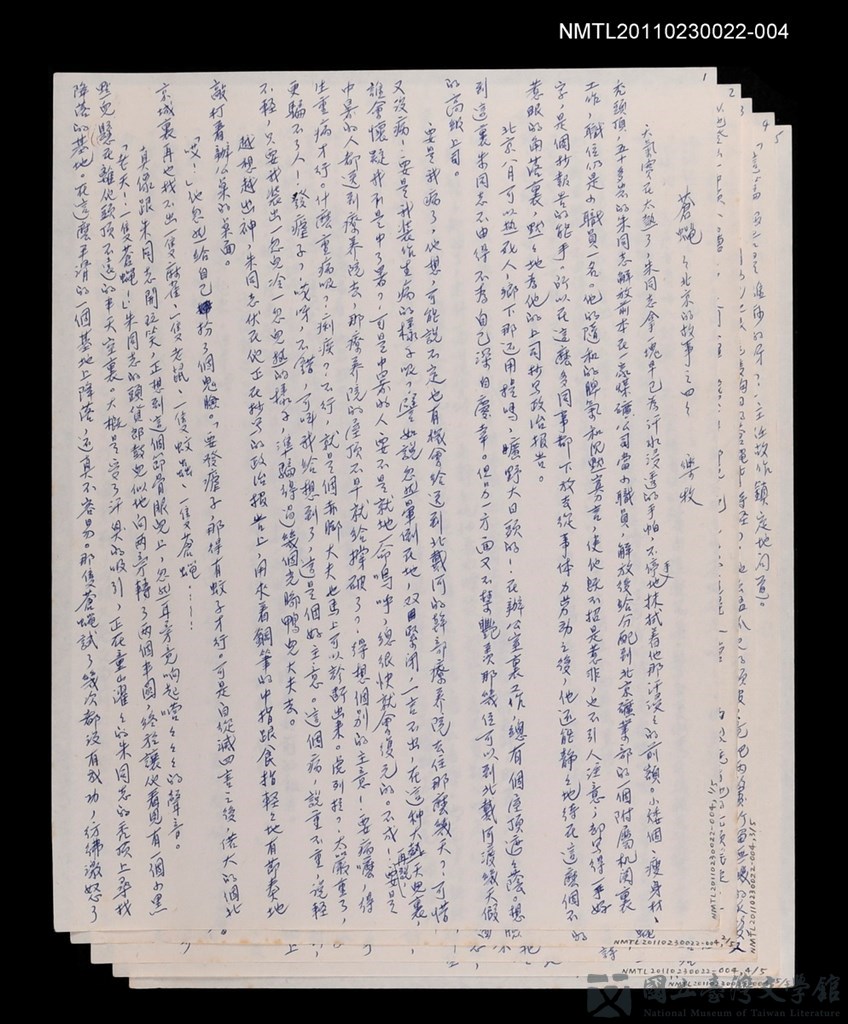 NMTL20110230022-004
蒼蠅 〈北京的故事之四〉 樂牧
天氣實在太熱了，朱同志拿一塊早已為汗水浸透的手帕，不停地扶拭着他那汗涔涔的前額。小矮個、瘦身材、
禿頭頂，五十多歲的朱同志解放前本在一家煤礦公司當小職員，解放後給分配到北京礦業部的一個附屬机関裏
工作，職位仍是小職員一名。他的隨和的脾氣和沉默寡言，使他既不招是惹非，也不引人注意；卻寫得一手好
字，是個抄報告的能手。所以在這麼多同事都下放去從事体力勞动之後，他还能靜靜地待在這麼個不
惹眼的角落裏，默默地為他的上司抄写政治報告。
北京八月可以熱死人，鄉下那还用提嗎，曠野大日頭的！在辦公室裏工作，總有個屋頂遮遮蔭。想
到這裏朱同志不由得不為自己深自慶幸。但另一方面又不禁艷羨那幾位可以到北戴河渡幾天假
的高級上司。
要是我病了，他想，可能說不定也有機會給送到北戴河的幹部療养院去住那麼幾天？可惜
又沒病！要是我裝作生病的樣子呢？譬如說忽然暈倒在地，双眼緊闭，一言不出，在這种大熱天地裏，
誰會懷疑我不是中了暑？可是中暑的人要不是就地一命嗚呼，總很快就會復元的。不成！再說要是
中暑的人都送到療养院去，那療养院的屋頂不早就給撐破了？得想個别的主意！要病嚜，得
生重病才行。什麼重病呢？痢疾？不行，就是個赤脚大夫也馬上可以診断出来。虎列拉？太嚴重了，
更騙不了人！發瘧子？哎呀，不錯，可叫我給想到了，這是個好主意。這個病，說重不重，說輕
不輕，只要我裝出一忽兒冷一忽兒熱的樣子，準騙得過幾個光腳鴨兒大夫去。
越想越出神，朱同志伏在他正在抄写的政治報告上，用夾着鋼筆的中指跟食指輕輕地有節奏地
敲打着辦公桌的桌面。
「哎！」他忽然給自己扮了個鬼臉。「要發瘧子那得有蚊子才行。可是自從滅四害之後，偌大的個北
京城裏再也找不出一隻麻雀、一隻老鼠、一隻蚊蟲、一隻蒼蠅⋯⋯！
真像跟朱同志開玩笑，正想到這個節骨眼兒上，忽然耳旁竟响起嗡嗡嗡的聲音。
「老天！一隻蒼蠅！」朱同志的頭貨郎鼓兒似地向两旁轉了两個半圓，终於讓他看見有一個小黑
點兒懸在離他頭頂不远的半天空裏。大概是受了汗臭的吸引，正在童山濯濯的朱同志的禿頂上尋找
降落的基地。在這麼平滑的一個基地上降落，还真不容易。那隻蒼蠅試了幾次都没有成功，彷彿激怒了
1
2
3
4
5
NMTL20110230022-004, 1/5
NMTL20110230022-004, 2/5
NMTL20110230022-004, 4/5
NMTL20110230022-004, 5/5
國立臺灣文學館
National Museum of Taiwan Literature